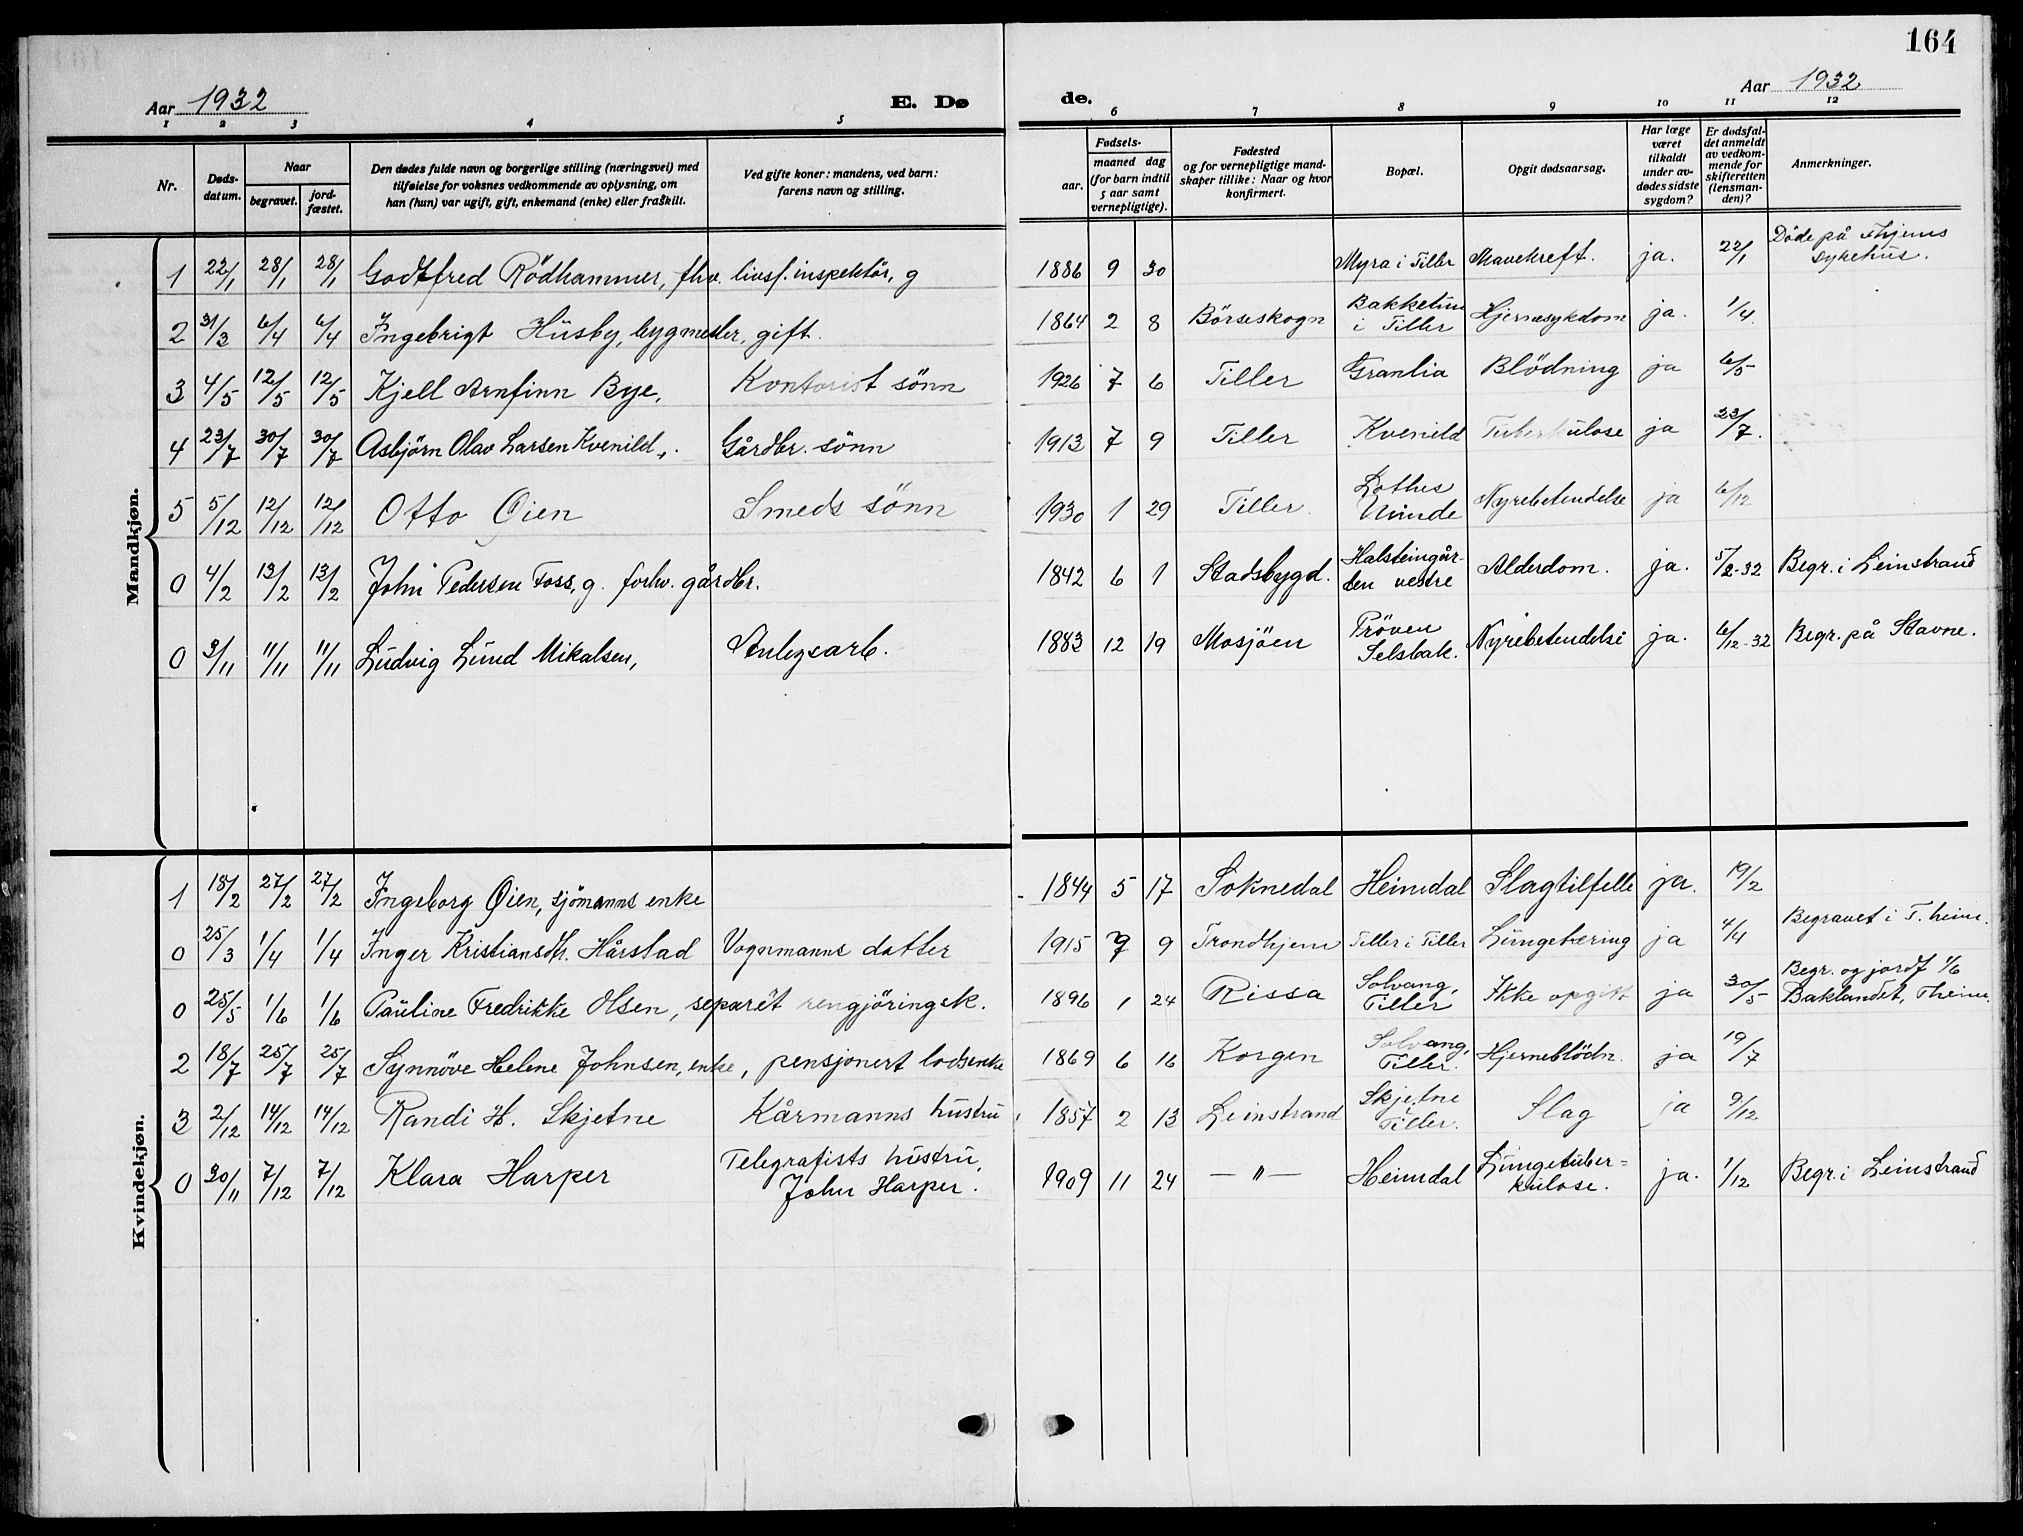 164
Aar 1932 E. Dø de. Aar 1932
1 2 3 4 5 6 7 8 9 10 11 12
Nr. | Døds-datum. | Naar begravet. | jord-fæstet. | Den dødes fulde navn og borgerlige stilling (næringsvei) med tilføielse for voksnes vedkommende av oplysning, om han (hun) var ugift, gift, enkemand (enke) eller fraskilt. | Ved gifte koner: mandens, ved barn: farens navn og stilling. | Fødsels- aar. | maaned dag (for barn indtil 5 aar samt vernepligtige). | Fødested og for vernepligtige mandskaper tillike: Naar og hvor konfirmert. | Bopæl. | Opgit dødsaarsag. | Har læge været tilkaldt under avdødes sidste sygdom? | Er dødsfaldet anmeldt av vedkommende for skifteretten (lensmanden)? | Anmerkninger.
Mandkjøn.
1 22/1 28/1 28/1 Godtfred Rödhammer, fhv. livsf. inspektör, g 1886 9 30 Myra i Tiller Mavekreft. ja. 22/1 Döde på Thjems sykehus.
2 31/3 6/4 6/4 Ingebrigt Husby, bygmester, gift. 1864 2 8 Börseskogn Bakketun i Tiller Hjernesykdom ja. 1/4
3 4/5 12/5 12/5 Kjell Arnfinn Bye, Kontorist sönn 1926 7 6 Tiller Granlia Blödning ja 6/5
4 23/7 30/7 30/7 Asbjörn Olav Larsen Kvenild, Gårdbr. sönn 1913 7 9 Tiller Kvenild Tuberkulose ja 23/7.
5 5/12 12/12 12/12 Otto Öien Smeds sönn 1930 1 29 Tiller. Lothes Minde Nyrebetendelse ja 6/12
0 4/2 13/2 13/2 John Pedersen Foss, g. forhv. gårdbr. 1842 6 1 Stadsbygd. Halsteingården vestre Alderdom. ja. 5/2-32 Begr. i Leinstrand
0 3/11 11/11 11/11 Ludvig Lund Mikalsen, Anlegsarb. 1883 12 19 Mosjöen Pröven Selsbak. Nyrebetendelse ja. 6/12-32 Begr. på Stavne.
Kvindekjøn.
1 18/2 27/2 27/2 Ingeborg Öien, sjömanns enke 1844 5 17 Soknedal Heimdal Slagtilfelle ja. 19/2
0 25/3 1/4 1/4 Inger Kristiansdtr. Hårstad Vognmanns datter 1915 7 9 Trondhjem Tiller i Tiller Lungetæring ja 4/4 Begravet i T.heim.
0 25/5 1/6 1/6 Pauline Fredrikke Olsen, separèt rengjöringsk. 1896 1 24 Rissa Solvang, Tiller Ikke opgitt ja 30/5 Begr. og jordf 1/6 Baklandet, Theim.
2 18/7 25/7 25/7 Synnöve Helene Johnsen, enke, pensjonert lodsenke 1869 6 16 Korgen Solvang, Tiller. Hjerneblödn. ja 19/7
3 2/12 14/12 14/12 Randi H. Skjetne Kårmanns hustru 1857 2 13 Leinstrand Skjetne i Tiller. Slag ja 9/12
0 30/11 7/12 7/12 Klara Harper Telegrafists hustru, John Harper. 1909 11 24 —"— Heimdal Lungetuber=kulose. ja. 1/12 Begr. i Leinstrand